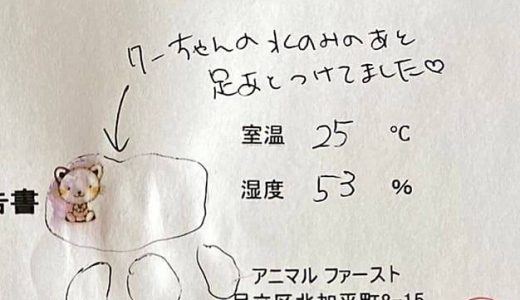 クーちゃんの水のみのあと
足あとつけてました♡
室温 25 ℃
湿度 53 %
告書
アニマル ファースト
足立区北加平町8-15